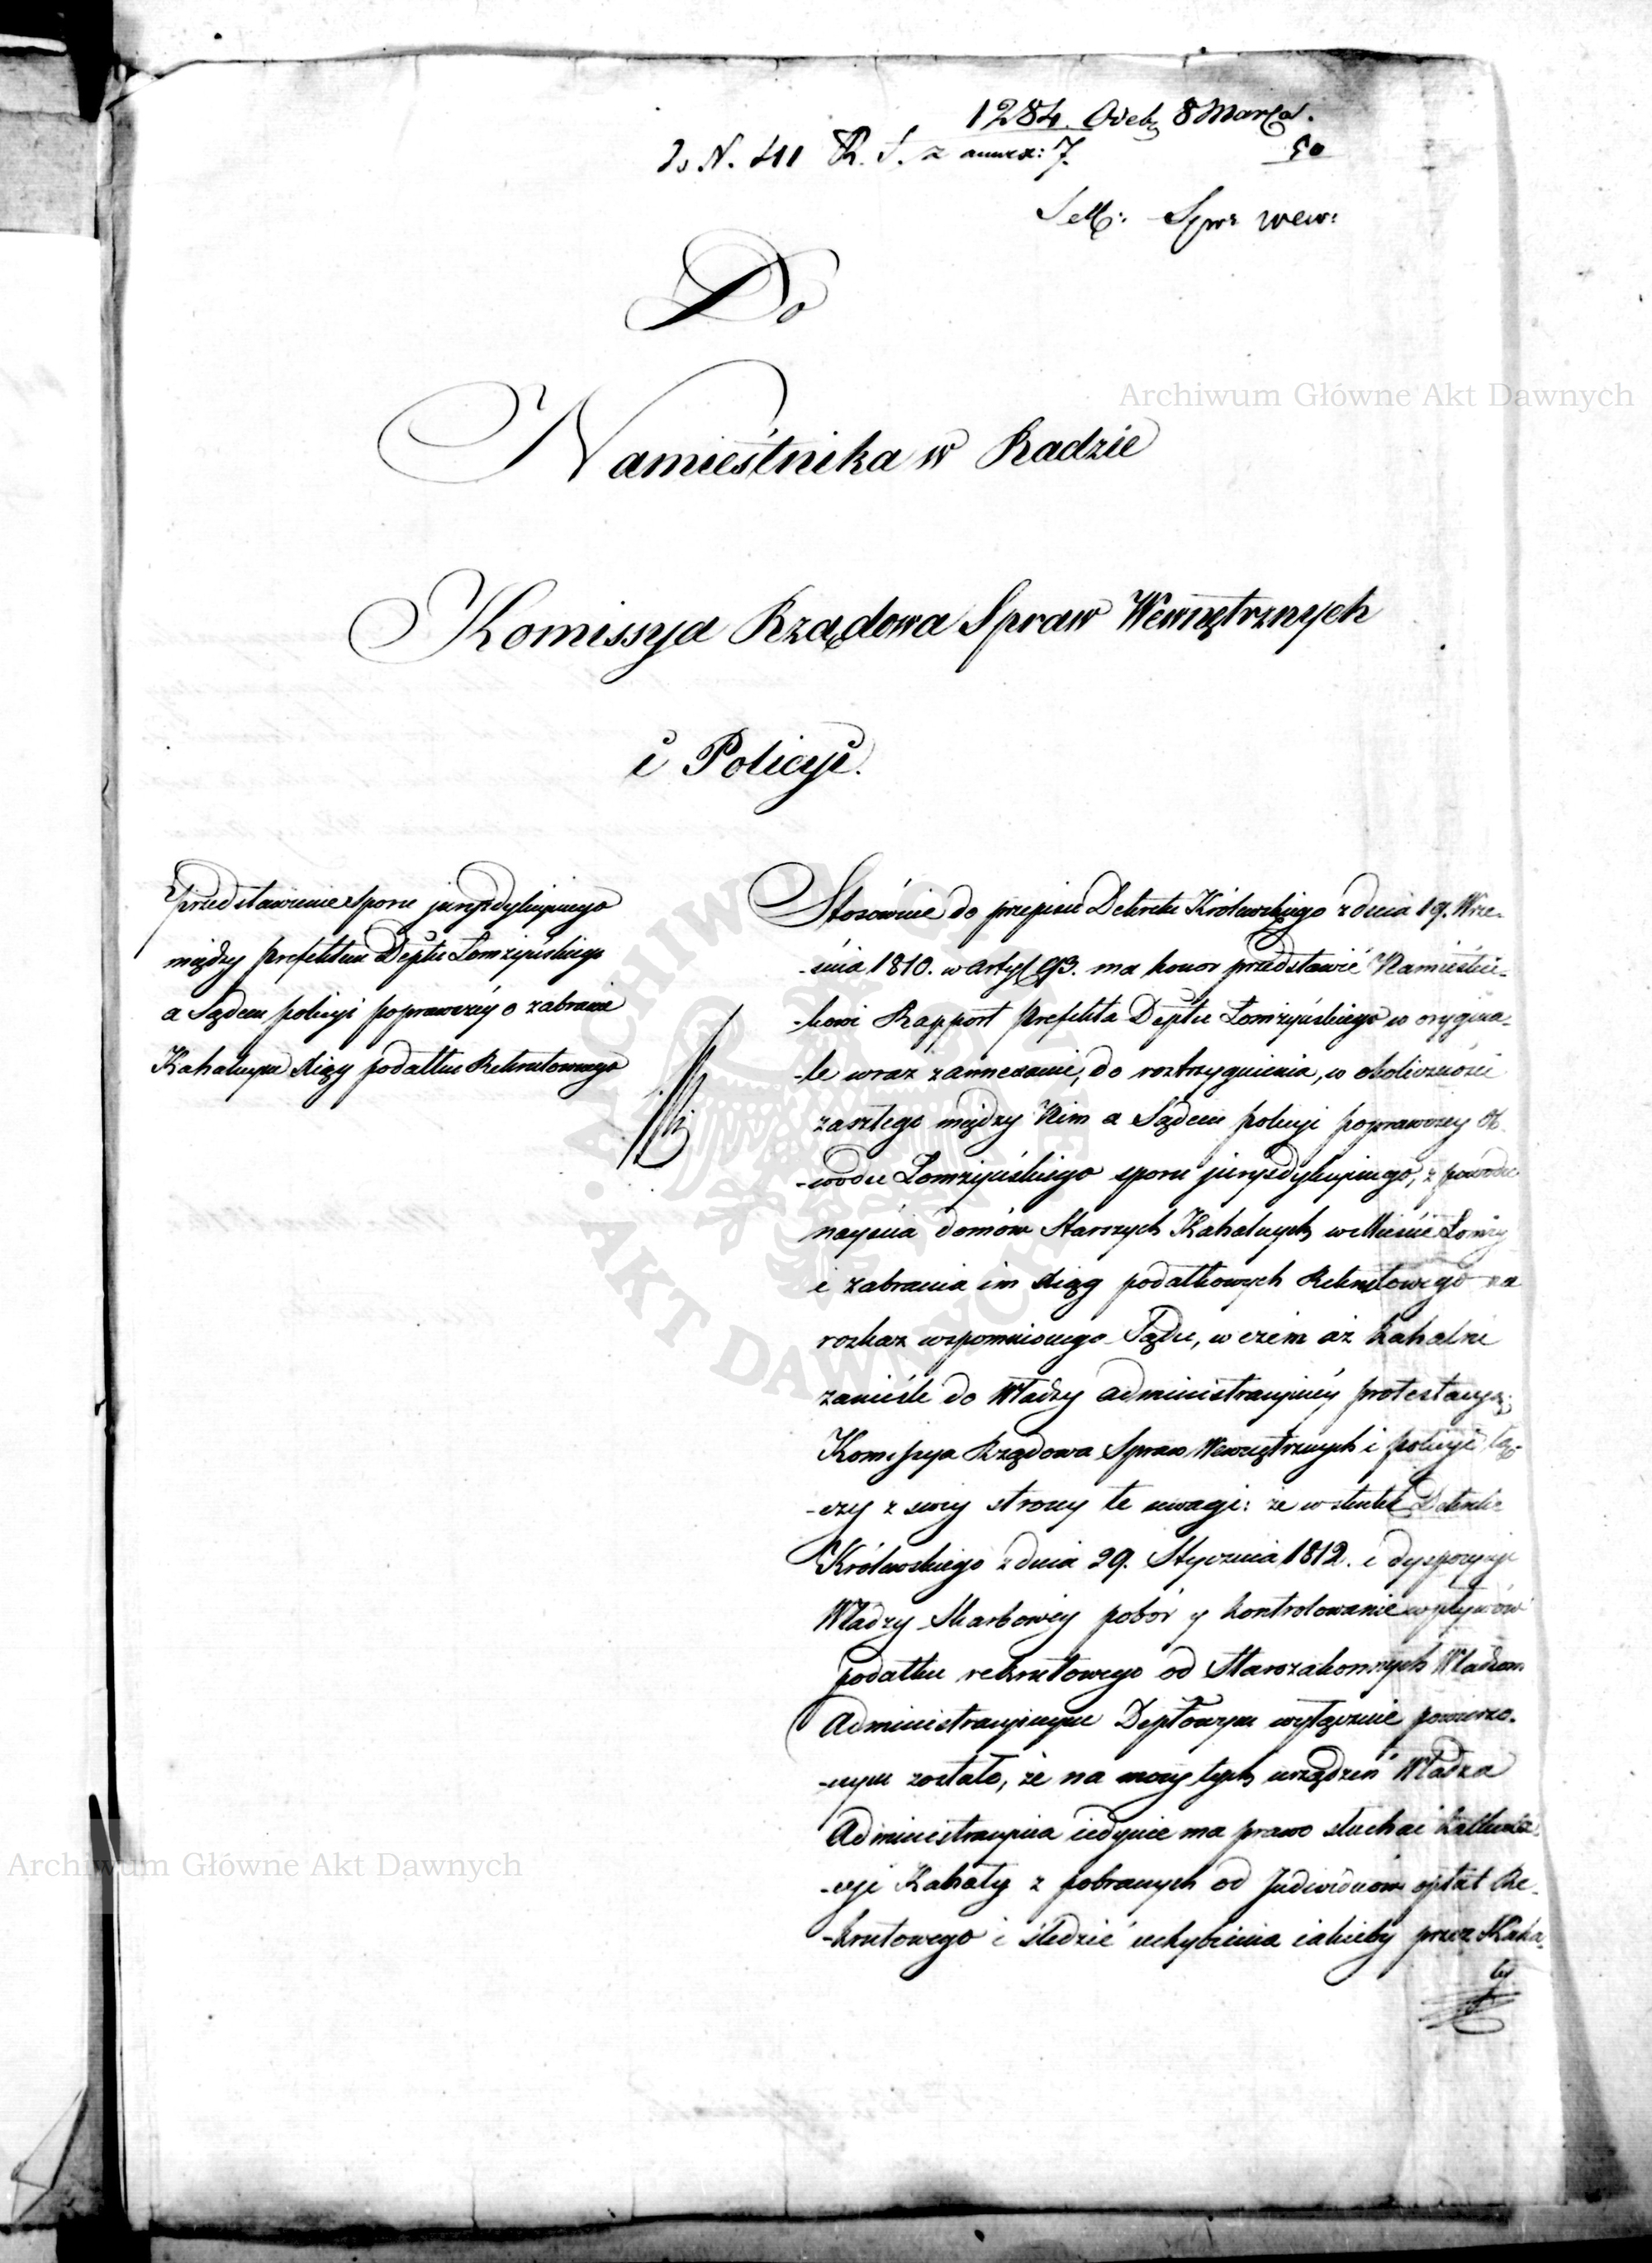 1284. Odeb. 8 Marca.
do N. 411 R. S. z annex: 7. 50
Sek: Spr: wew:
Do
Namiestnika w Radzie
Archiwum Główne Akt Dawnych
Komissya Rządowa Spraw Wewnętrznych
i Policyi.
Przedstawienie sporu juryzdykcyinego
między prefektem Deptu Łomżyńskiego
a Sądem policyi poprawczéy o zabranie
Kahalnym Xiąg podatku Rekrutowego
Stosównie do przepisu Dekretu Królewskiego z dnia 19. Wrze-
-śnia 1810. w artyf 93. ma honor przedstawić Namiestni-
-kowi Rapport Prefekta Deptu Łomżyńskiego w orygina-
-le wraz z annexami, do roztrzygnienia, w okoliczności
zaszłego między Nim a Sądem policyi poprawczey Ob-
-wodu Łomżyńskiego sporu juryzdykcyinego, z powodu
nayścia domów Starszych Kahalnych w Mieście Łomży
i zabrania im Xiąg podatkowych Rekrutowego na
rozkaz wspomnionego Sądu, w czém aż Kahalni
zanieśli do Władzy administracyinéy protestacyą;
Komissya Rządowa Spraw Wewnętrznych i policyi łą-
-czy z swéy strony te uwagi: że w skutek Dekretu
Królewskiego z dnia 29. Stycznia 1812. i dyspozycyi
Władzy Skarbowéy pobór y kontrolowanie wpływów
podatku rekrutowego od Starozakonnych Władzom
Administracyinym Deptowym wyłącznie powierzo-
-nym zostało, że na mocy tych urządzeń Władza
Administracyina iedynie ma prawo słuchać kalkula-
-cyi Kahały z pobranych od Indywiduów opłat Re-
-krutowego i śledzić uchybienia iakieby przez Kaha-
ły
ARCHIWUM GŁÓWNE AKT DAWNYCH
Archiwum Główne Akt Dawnych